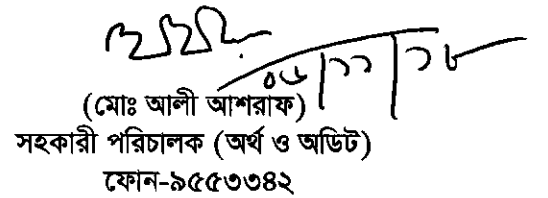 ০৬/১১/১৮
(মোঃ আলী আশরাফ)
সহকারী পরিচালক (অর্থ ও অডিট)
ফোন-৯৫৫৩৩৪২